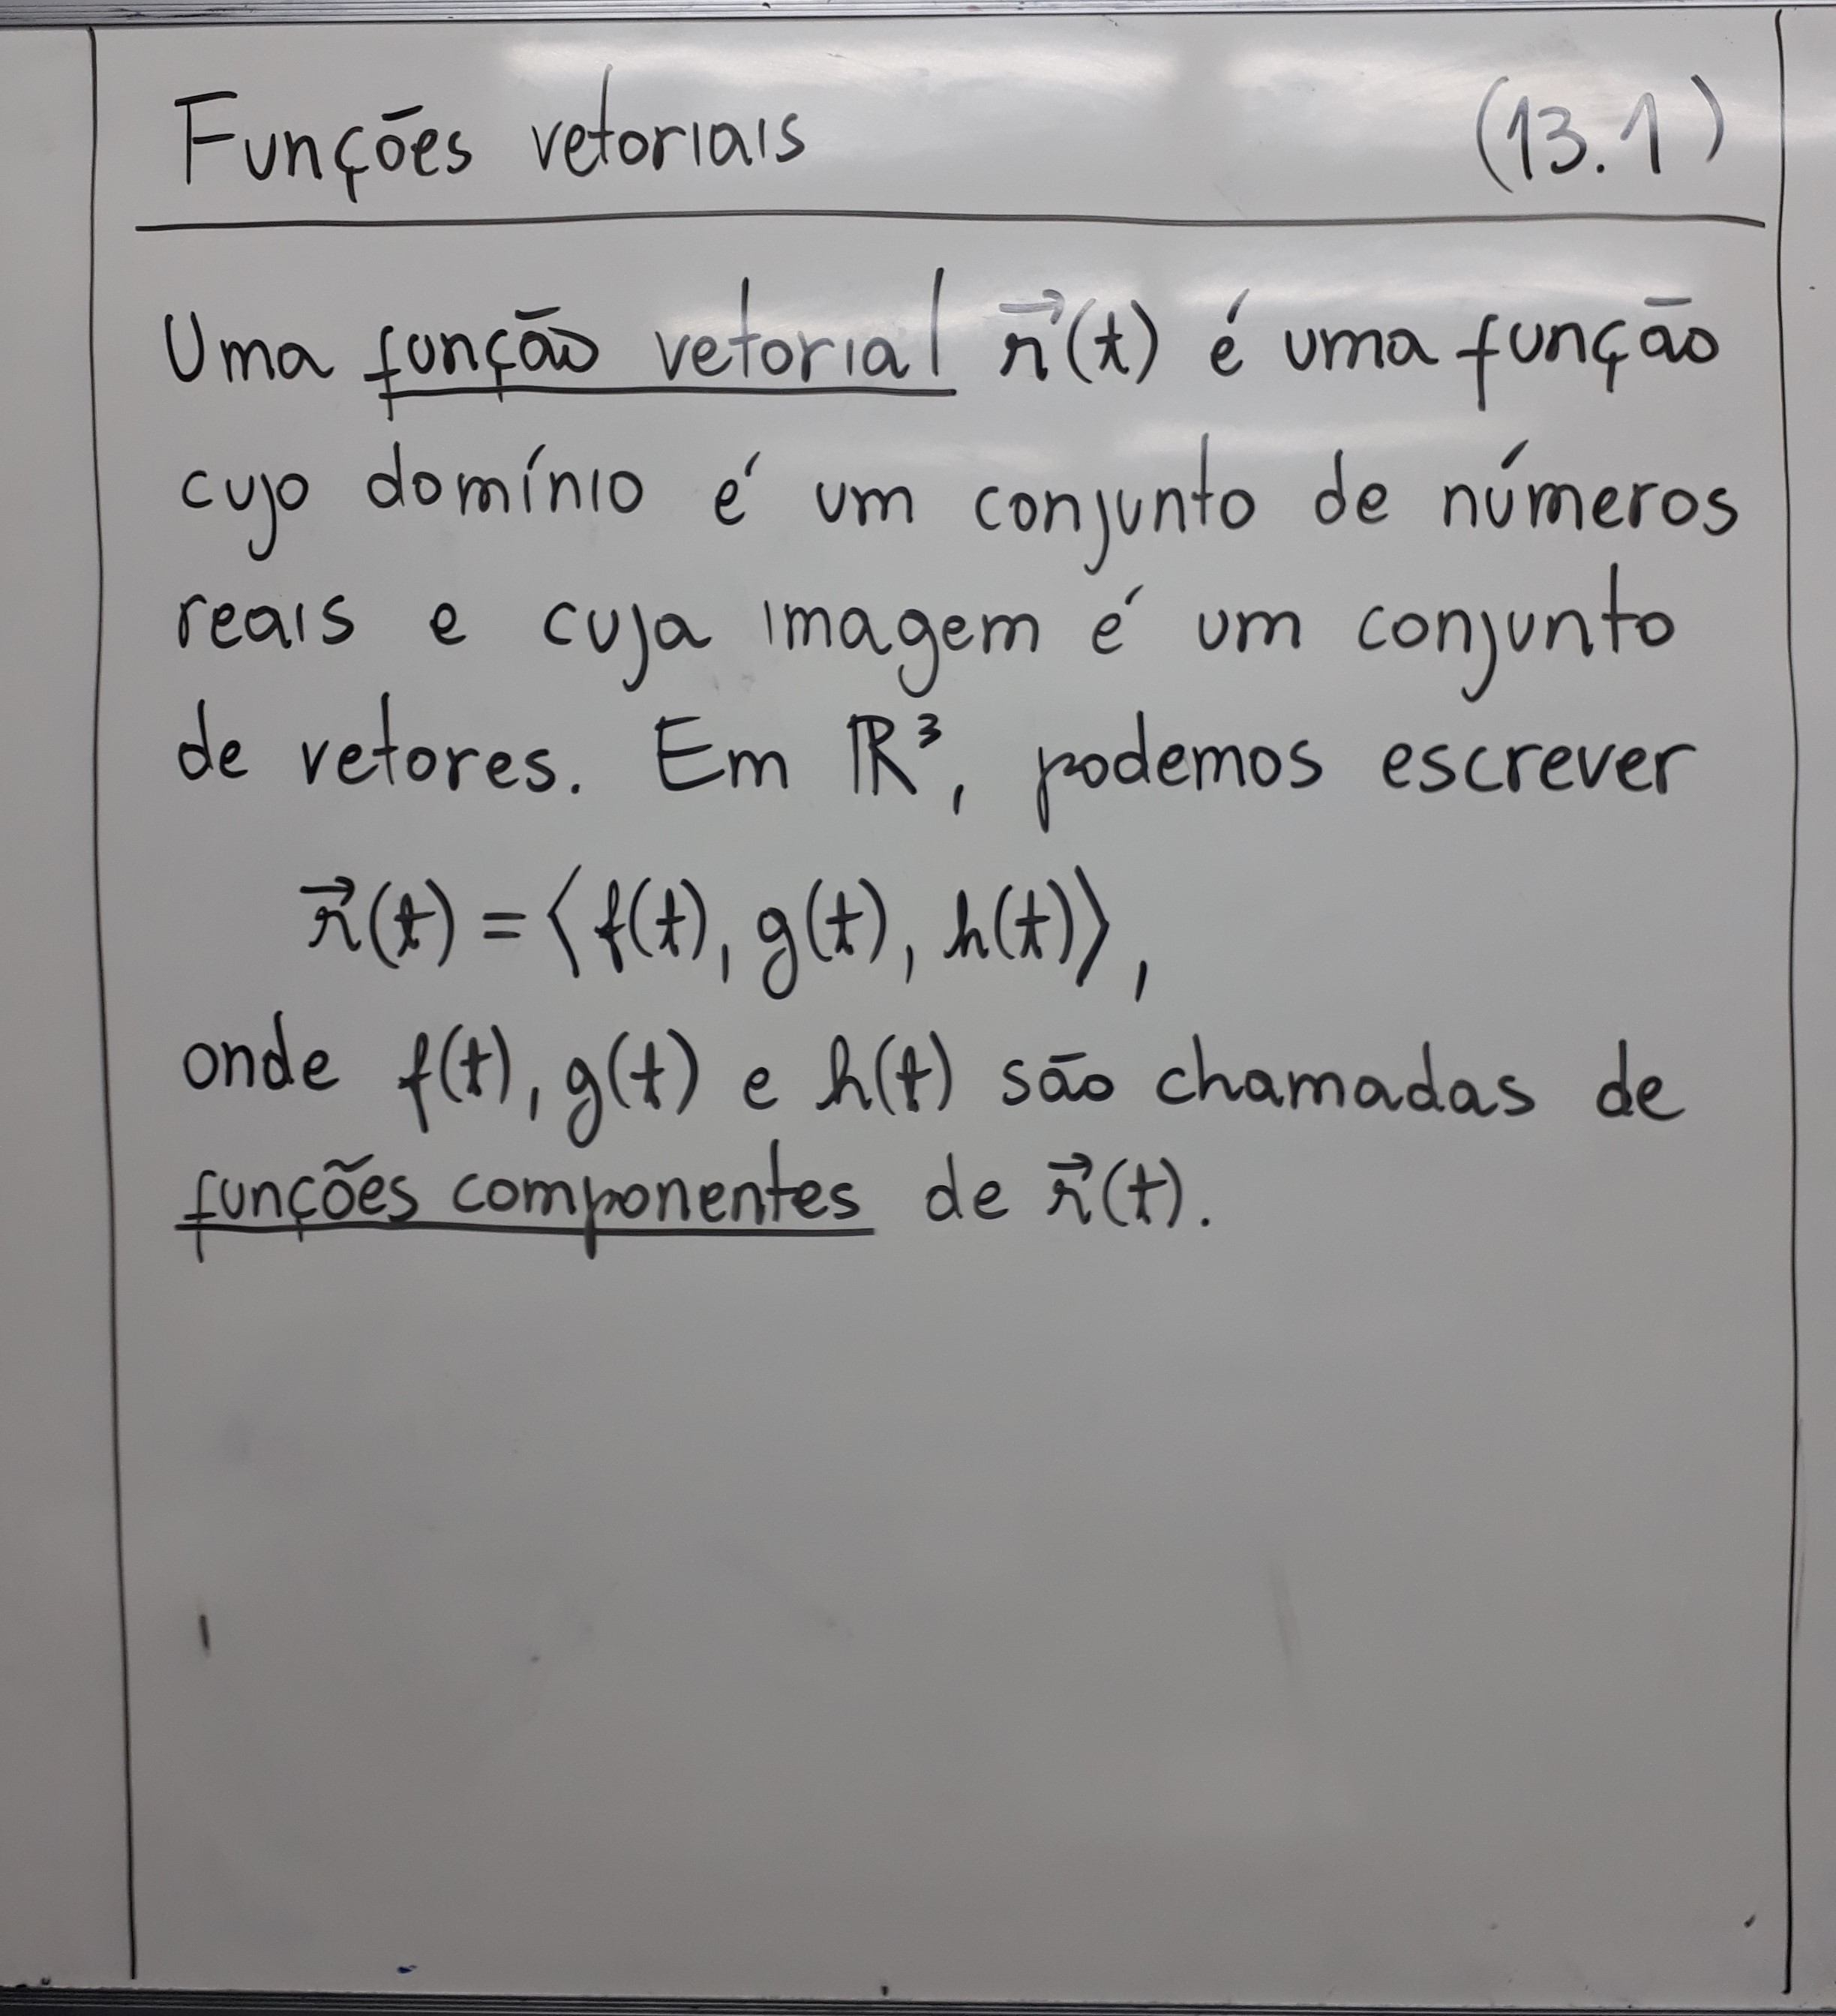 Funções vetoriais (13.1)
Uma função vetorial r⃗(t) é uma função
cujo domínio é um conjunto de números
reais e cuja imagem é um conjunto
de vetores. Em ℝ³, podemos escrever
r⃗(t) = ⟨f(t), g(t), h(t)⟩,
onde f(t), g(t) e h(t) são chamadas de
funções componentes de r⃗(t).